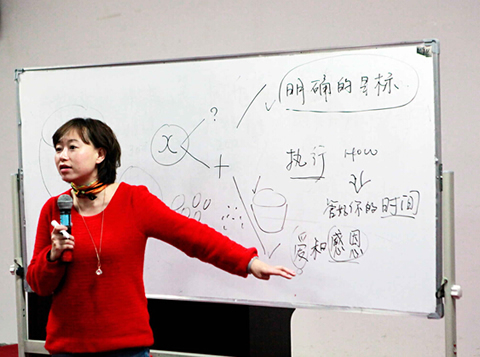 明确的目标
?
x
+
执行 HOW
管好你的时间
爱和感恩